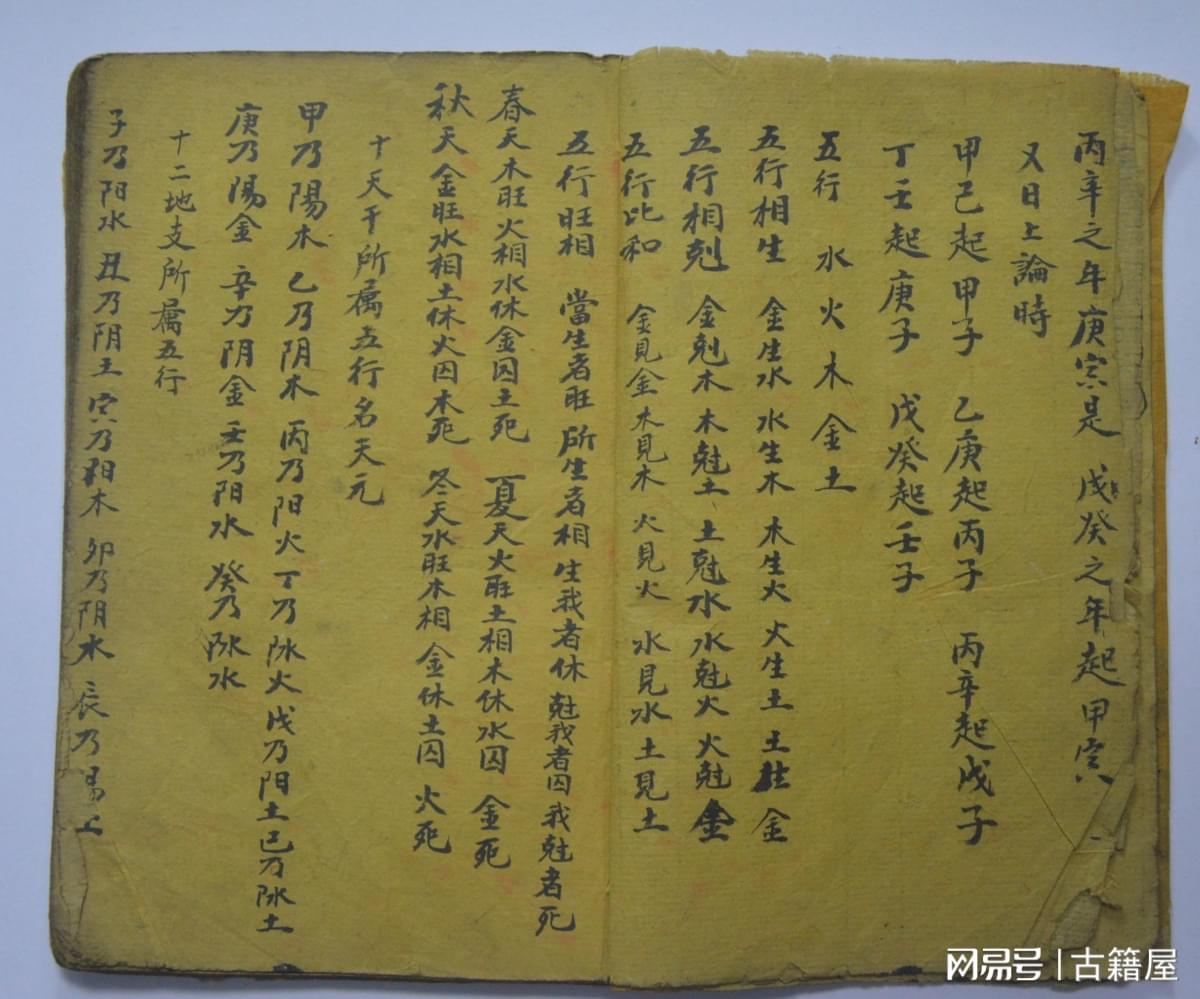 丙辛之年庚寅是 戊癸之年起甲寅
又日上論時
甲己起甲子 乙庚起丙子 丙辛起戊子
丁壬起庚子 戊癸起壬子
五行 水火木金土
五行相生 金生水 水生木 木生火 火生土 土生金
五行相剋 金剋木 木尅土 土尅水 水尅火 火尅金
五行比和 金見金 木見木 火見火 水見水 土見土
五行旺相 當生者旺 所生者相 生我者休 尅我者囚 我尅者死
春天木旺火相水休金囚土死 夏天火旺土相木休水囚 金死
秋天金旺水相土休火囚木死 冬天水旺木相 金休土囚 火死
十天干所属五行名天元
甲乃陽木 乙乃阴木 丙乃阳火 丁乃阴火 戊乃阳土 己乃阴土
庚乃陽金 辛乃阴金 壬乃阳水 癸乃阴水
十二地支所属五行
子乃阳水 丑乃阴土 寅乃阳木 卯乃阴木 辰乃陽土
网易号 | 古籍屋